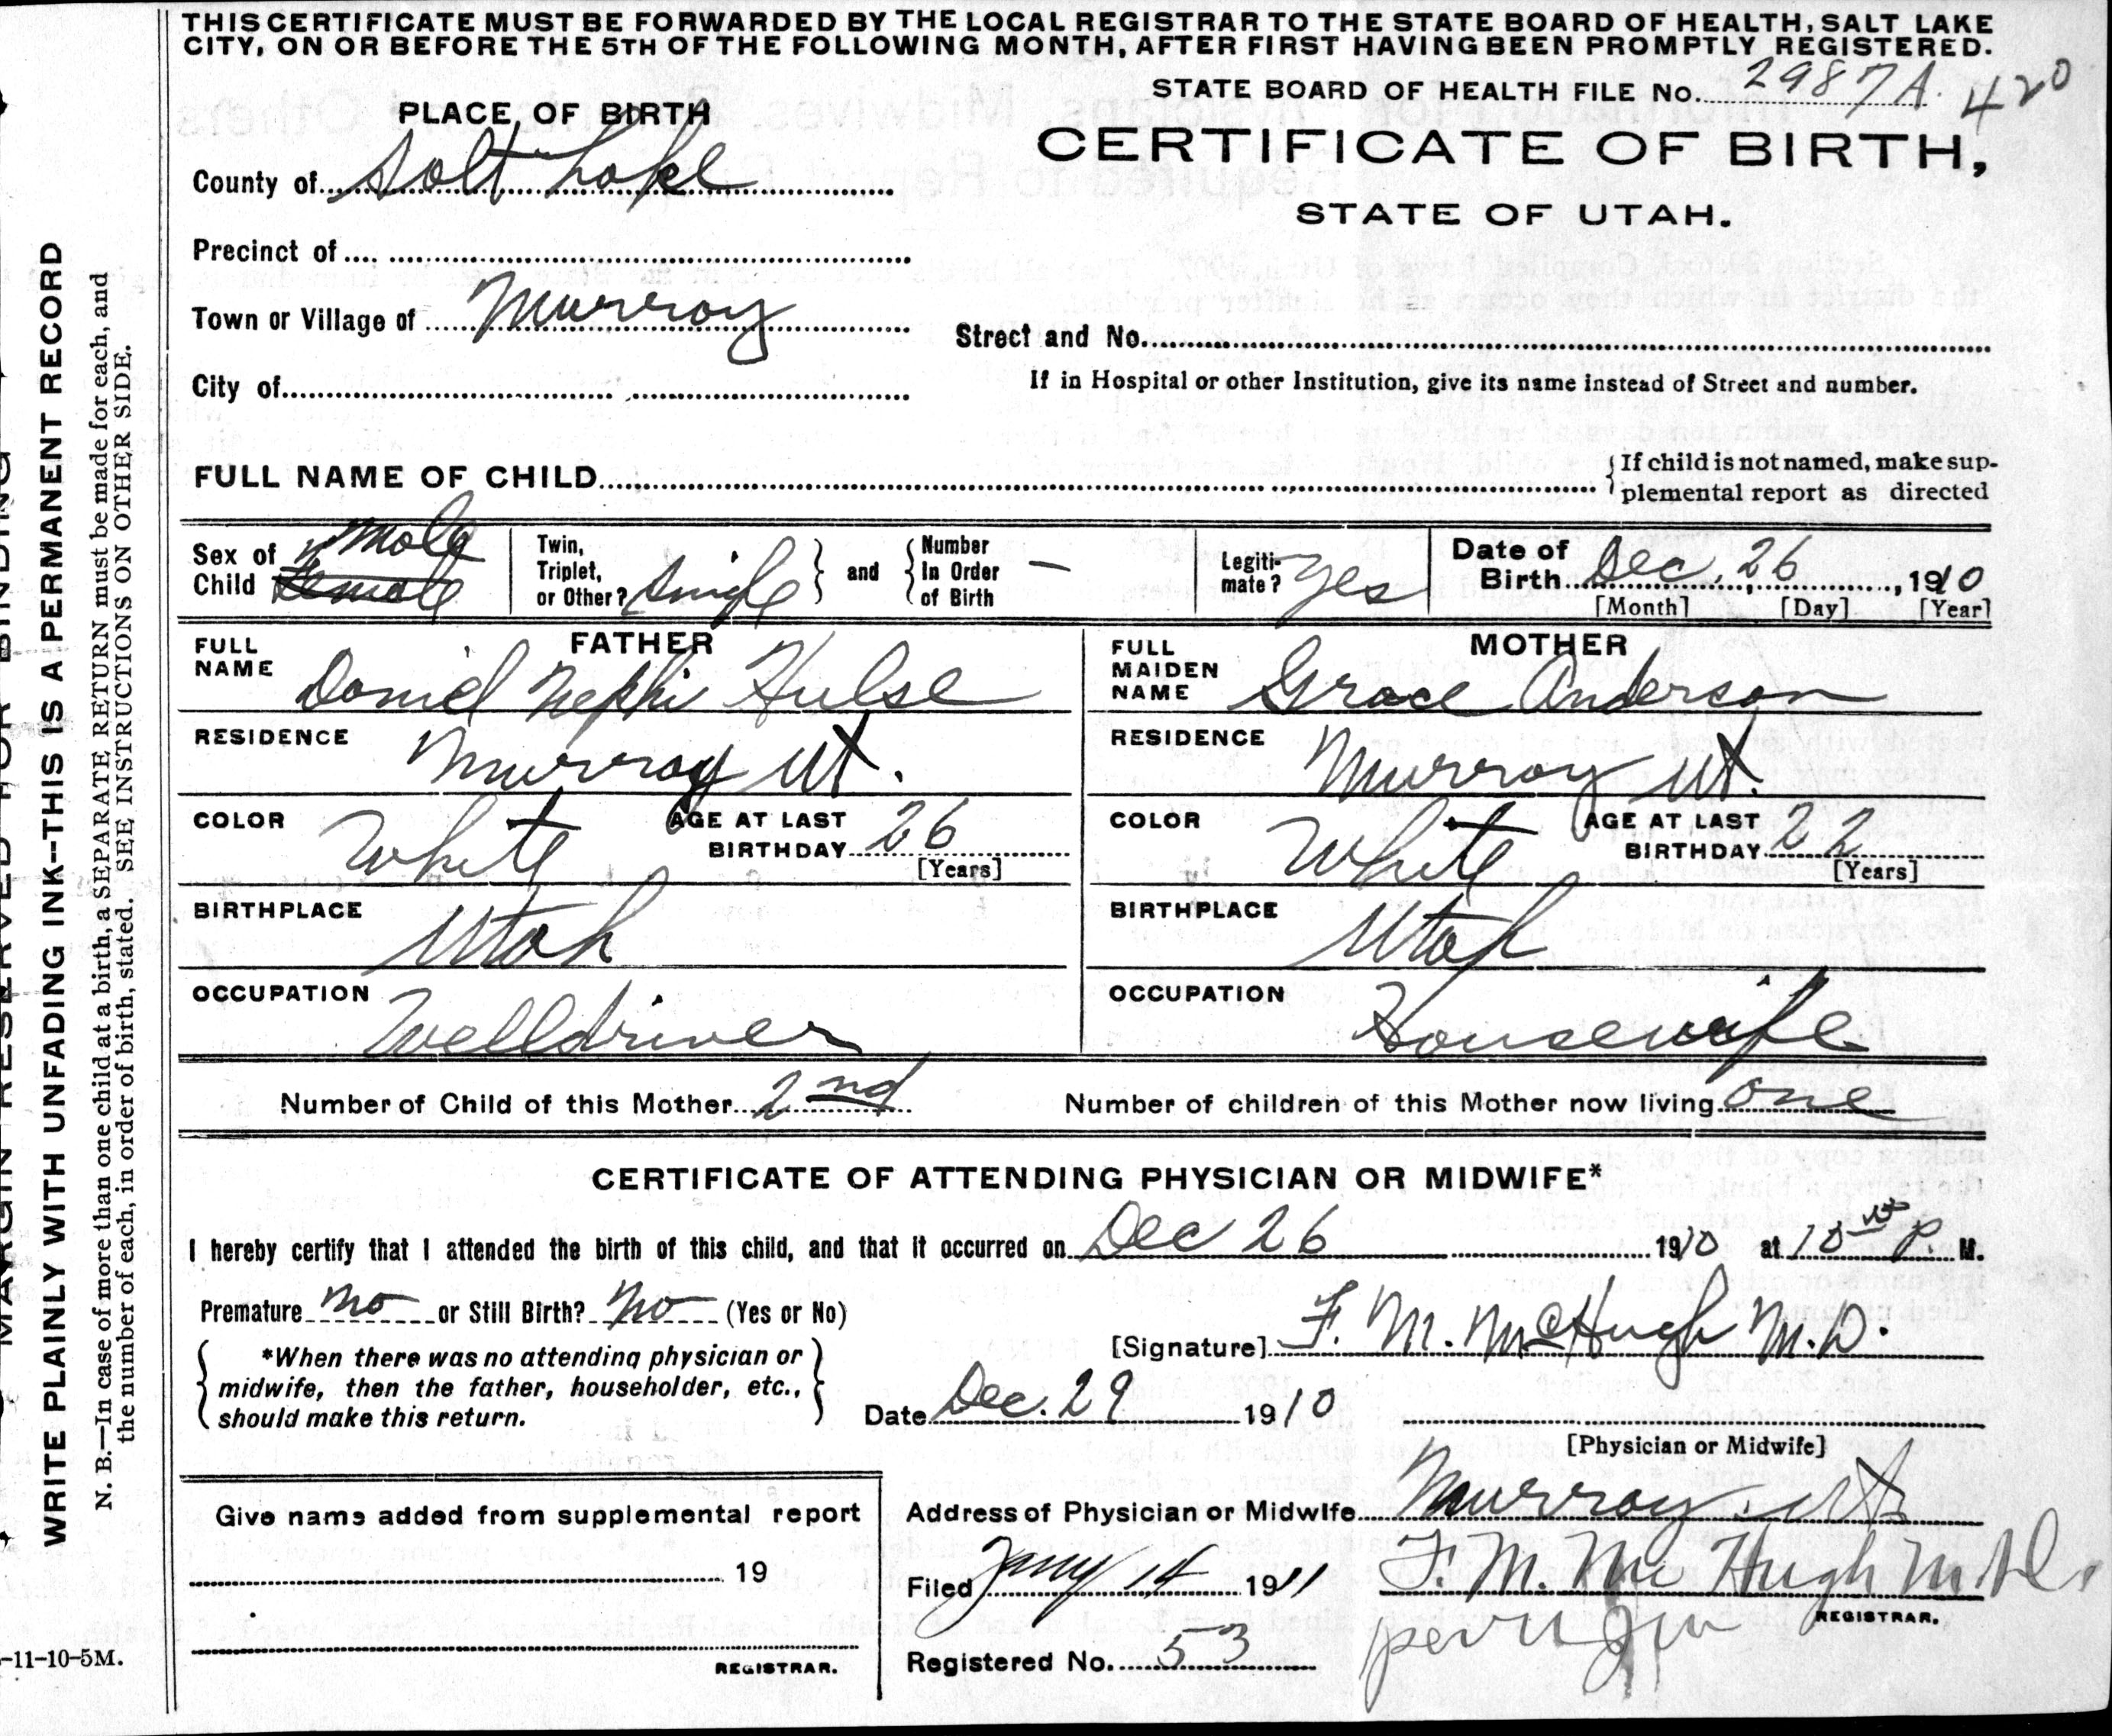 THIS CERTIFICATE MUST BE FORWARDED BY THE LOCAL REGISTRAR TO THE STATE BOARD OF HEALTH, SALT LAKE
CITY, ON OR BEFORE THE 5TH OF THE FOLLOWING MONTH, AFTER FIRST HAVING BEEN PROMPTLY REGISTERED.
STATE BOARD OF HEALTH FILE No. 2987A. 420
PLACE OF BIRTH
CERTIFICATE OF BIRTH,
STATE OF UTAH.
County of Salt Lake
Precinct of
Town or Village of Murray
Street and No.
City of
If in Hospital or other Institution, give its name instead of Street and number.
FULL NAME OF CHILD
If child is not named, make sup-
plemental report as directed
Sex of Child Male Female
Twin, Triplet, or Other? Single and Number In Order of Birth —
Legiti-mate? Yes
Date of Birth Dec. 26, 1910
[Month] [Day] [Year]
FATHER
FULL NAME Daniel Nephi Hulse
RESIDENCE Murray Ut.
COLOR White AGE AT LAST BIRTHDAY 26
[Years]
BIRTHPLACE Utah
OCCUPATION Welldriver
MOTHER
FULL MAIDEN NAME Grace Anderson
RESIDENCE Murray Ut.
COLOR White AGE AT LAST BIRTHDAY 22
[Years]
BIRTHPLACE Utah
OCCUPATION Housewife
Number of Child of this Mother 2nd Number of children of this Mother now living one
CERTIFICATE OF ATTENDING PHYSICIAN OR MIDWIFE*
I hereby certify that I attended the birth of this child, and that it occurred on Dec 26 1910 at 10 P. M.
Premature no or Still Birth? no (Yes or No)
[Signature] F. M. McHugh M.D.
*When there was no attending physician or
midwife, then the father, householder, etc.,
should make this return.
Date Dec. 29 1910
[Physician or Midwife]
Address of Physician or Midwife Murray
Give name added from supplemental report
19
REGISTRAR.
Filed Jany 14 1911 F. M. McHugh M.D.
REGISTRAR.
per
Registered No. 53
MARGIN RESERVED FOR BINDING
WRITE PLAINLY WITH UNFADING INK--THIS IS A PERMANENT RECORD
N. B.—In case of more than one child at a birth, a SEPARATE RETURN must be made for each, and
the number of each, in order of birth, stated. SEE INSTRUCTIONS ON OTHER SIDE.
-11-10-5M.